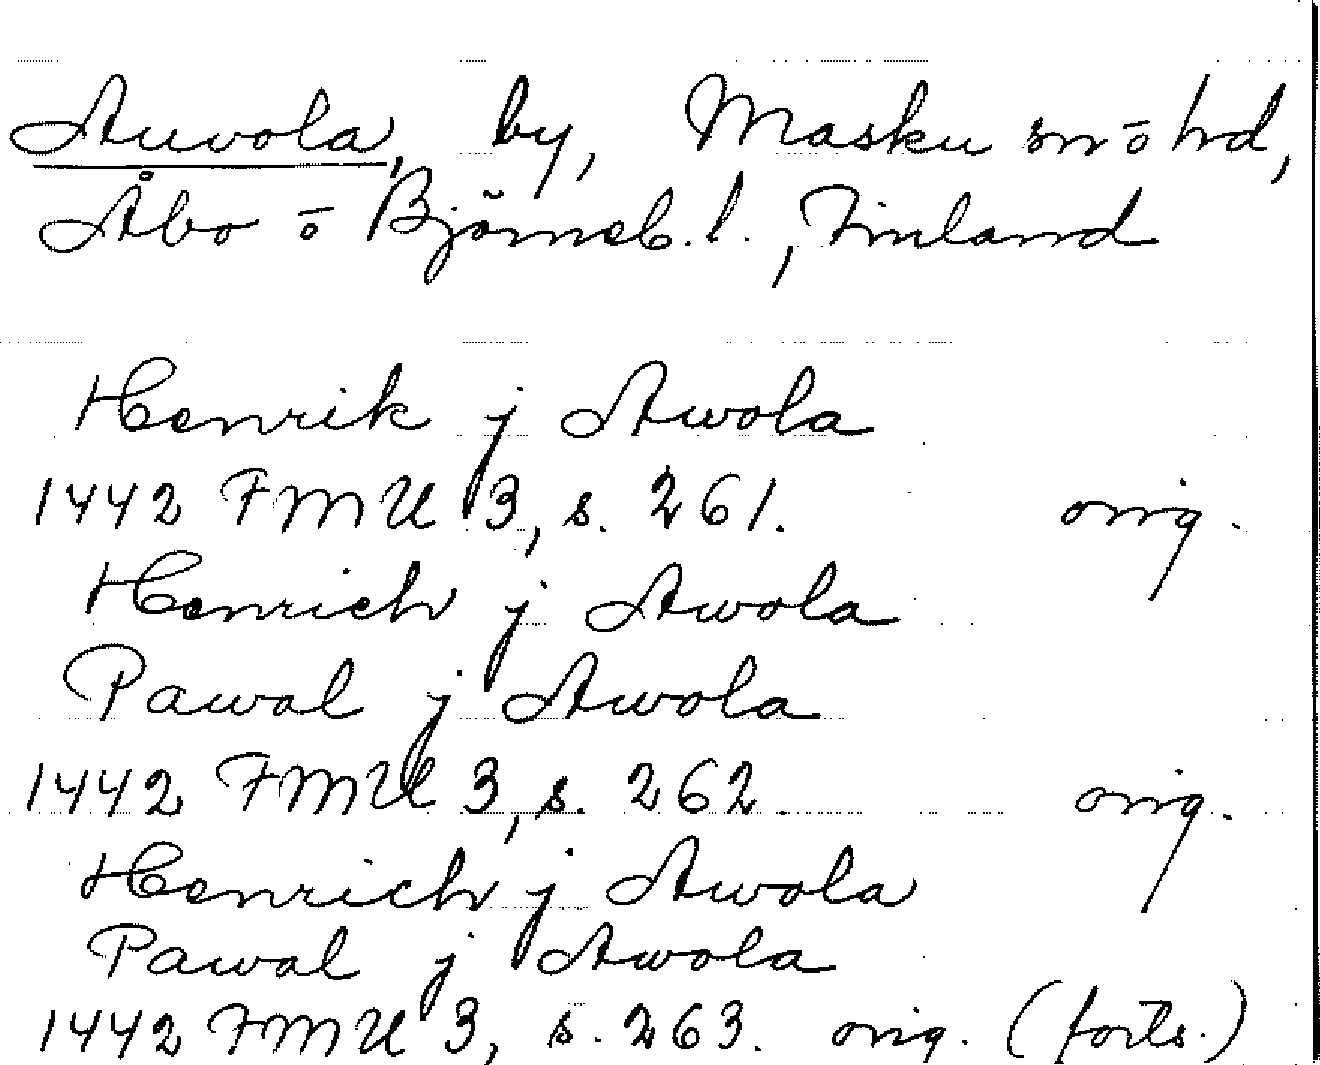 Auvola, by, Masku sn ō hd,
Åbo ō Björneb. l., Finland
Henrik j Awola
1442 FMU 3, s. 261. orig.
Henrich j Awola
Pawal j Awola
1442 FMU 3, s. 262. orig.
Henrich j Awola
Pawal j Awola
1442 FMU 3, s. 263. orig. (forts.)